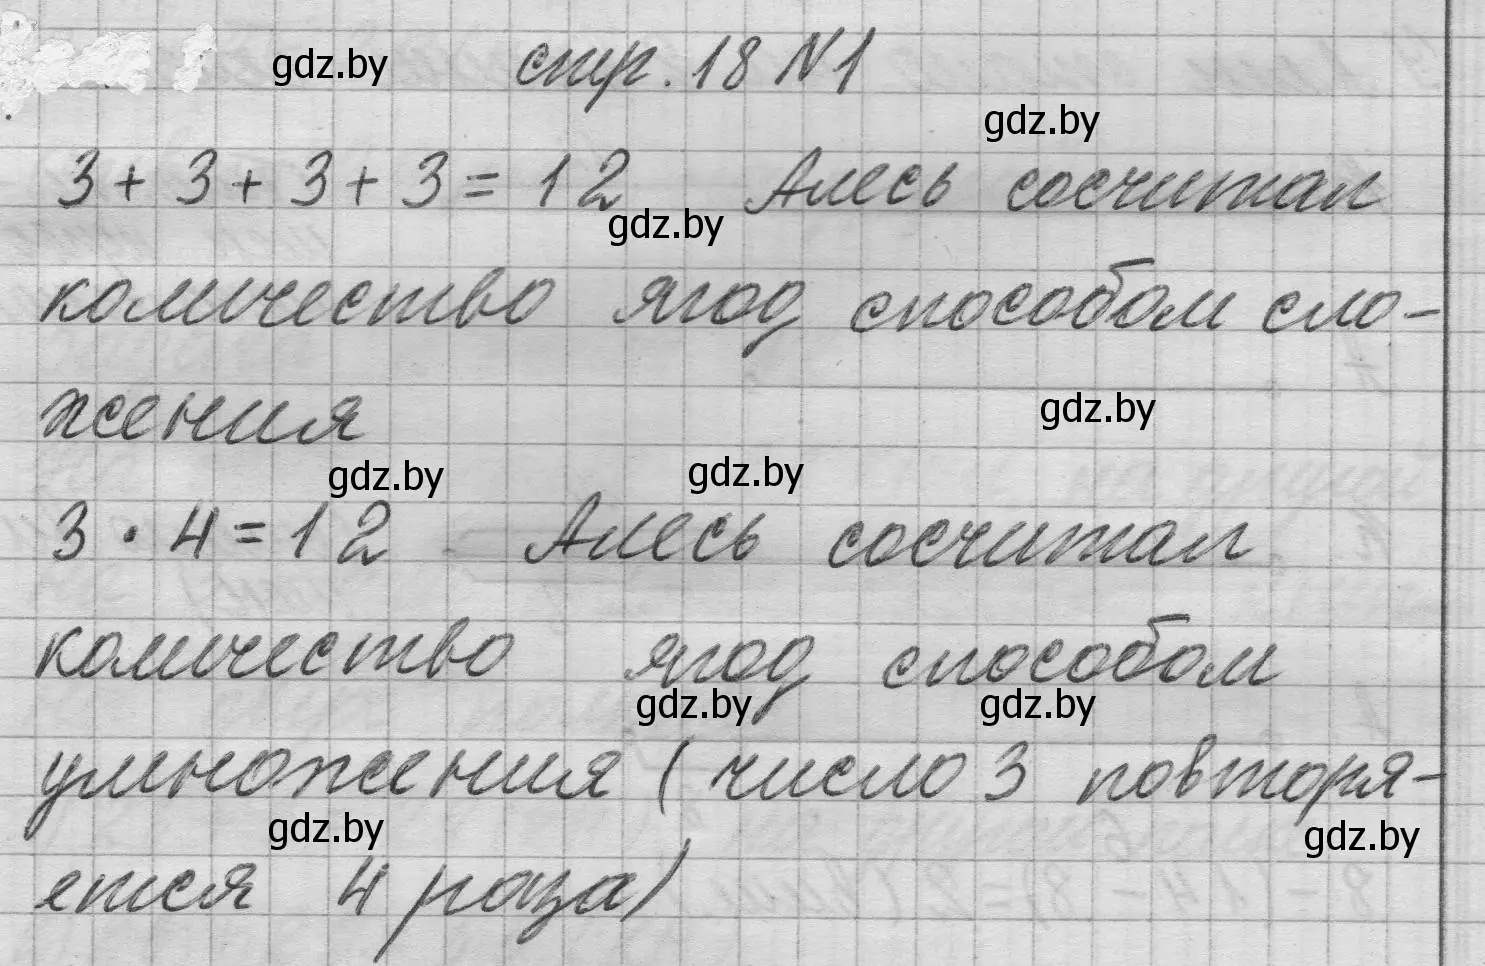 gdz.by стр. 18 N1
gdz.by
3 + 3 + 3 + 3 = 12 Алесь сосчитал
gdz.by
количество ягод способом сло-
жения
gdz.by
gdz.by gdz.by
3 · 4 = 12 Алесь сосчитал
количество ягод способом
gdz.by gdz.by
умножения (число 3 повторя-
gdz.by gdz.by
ется 4 раза)